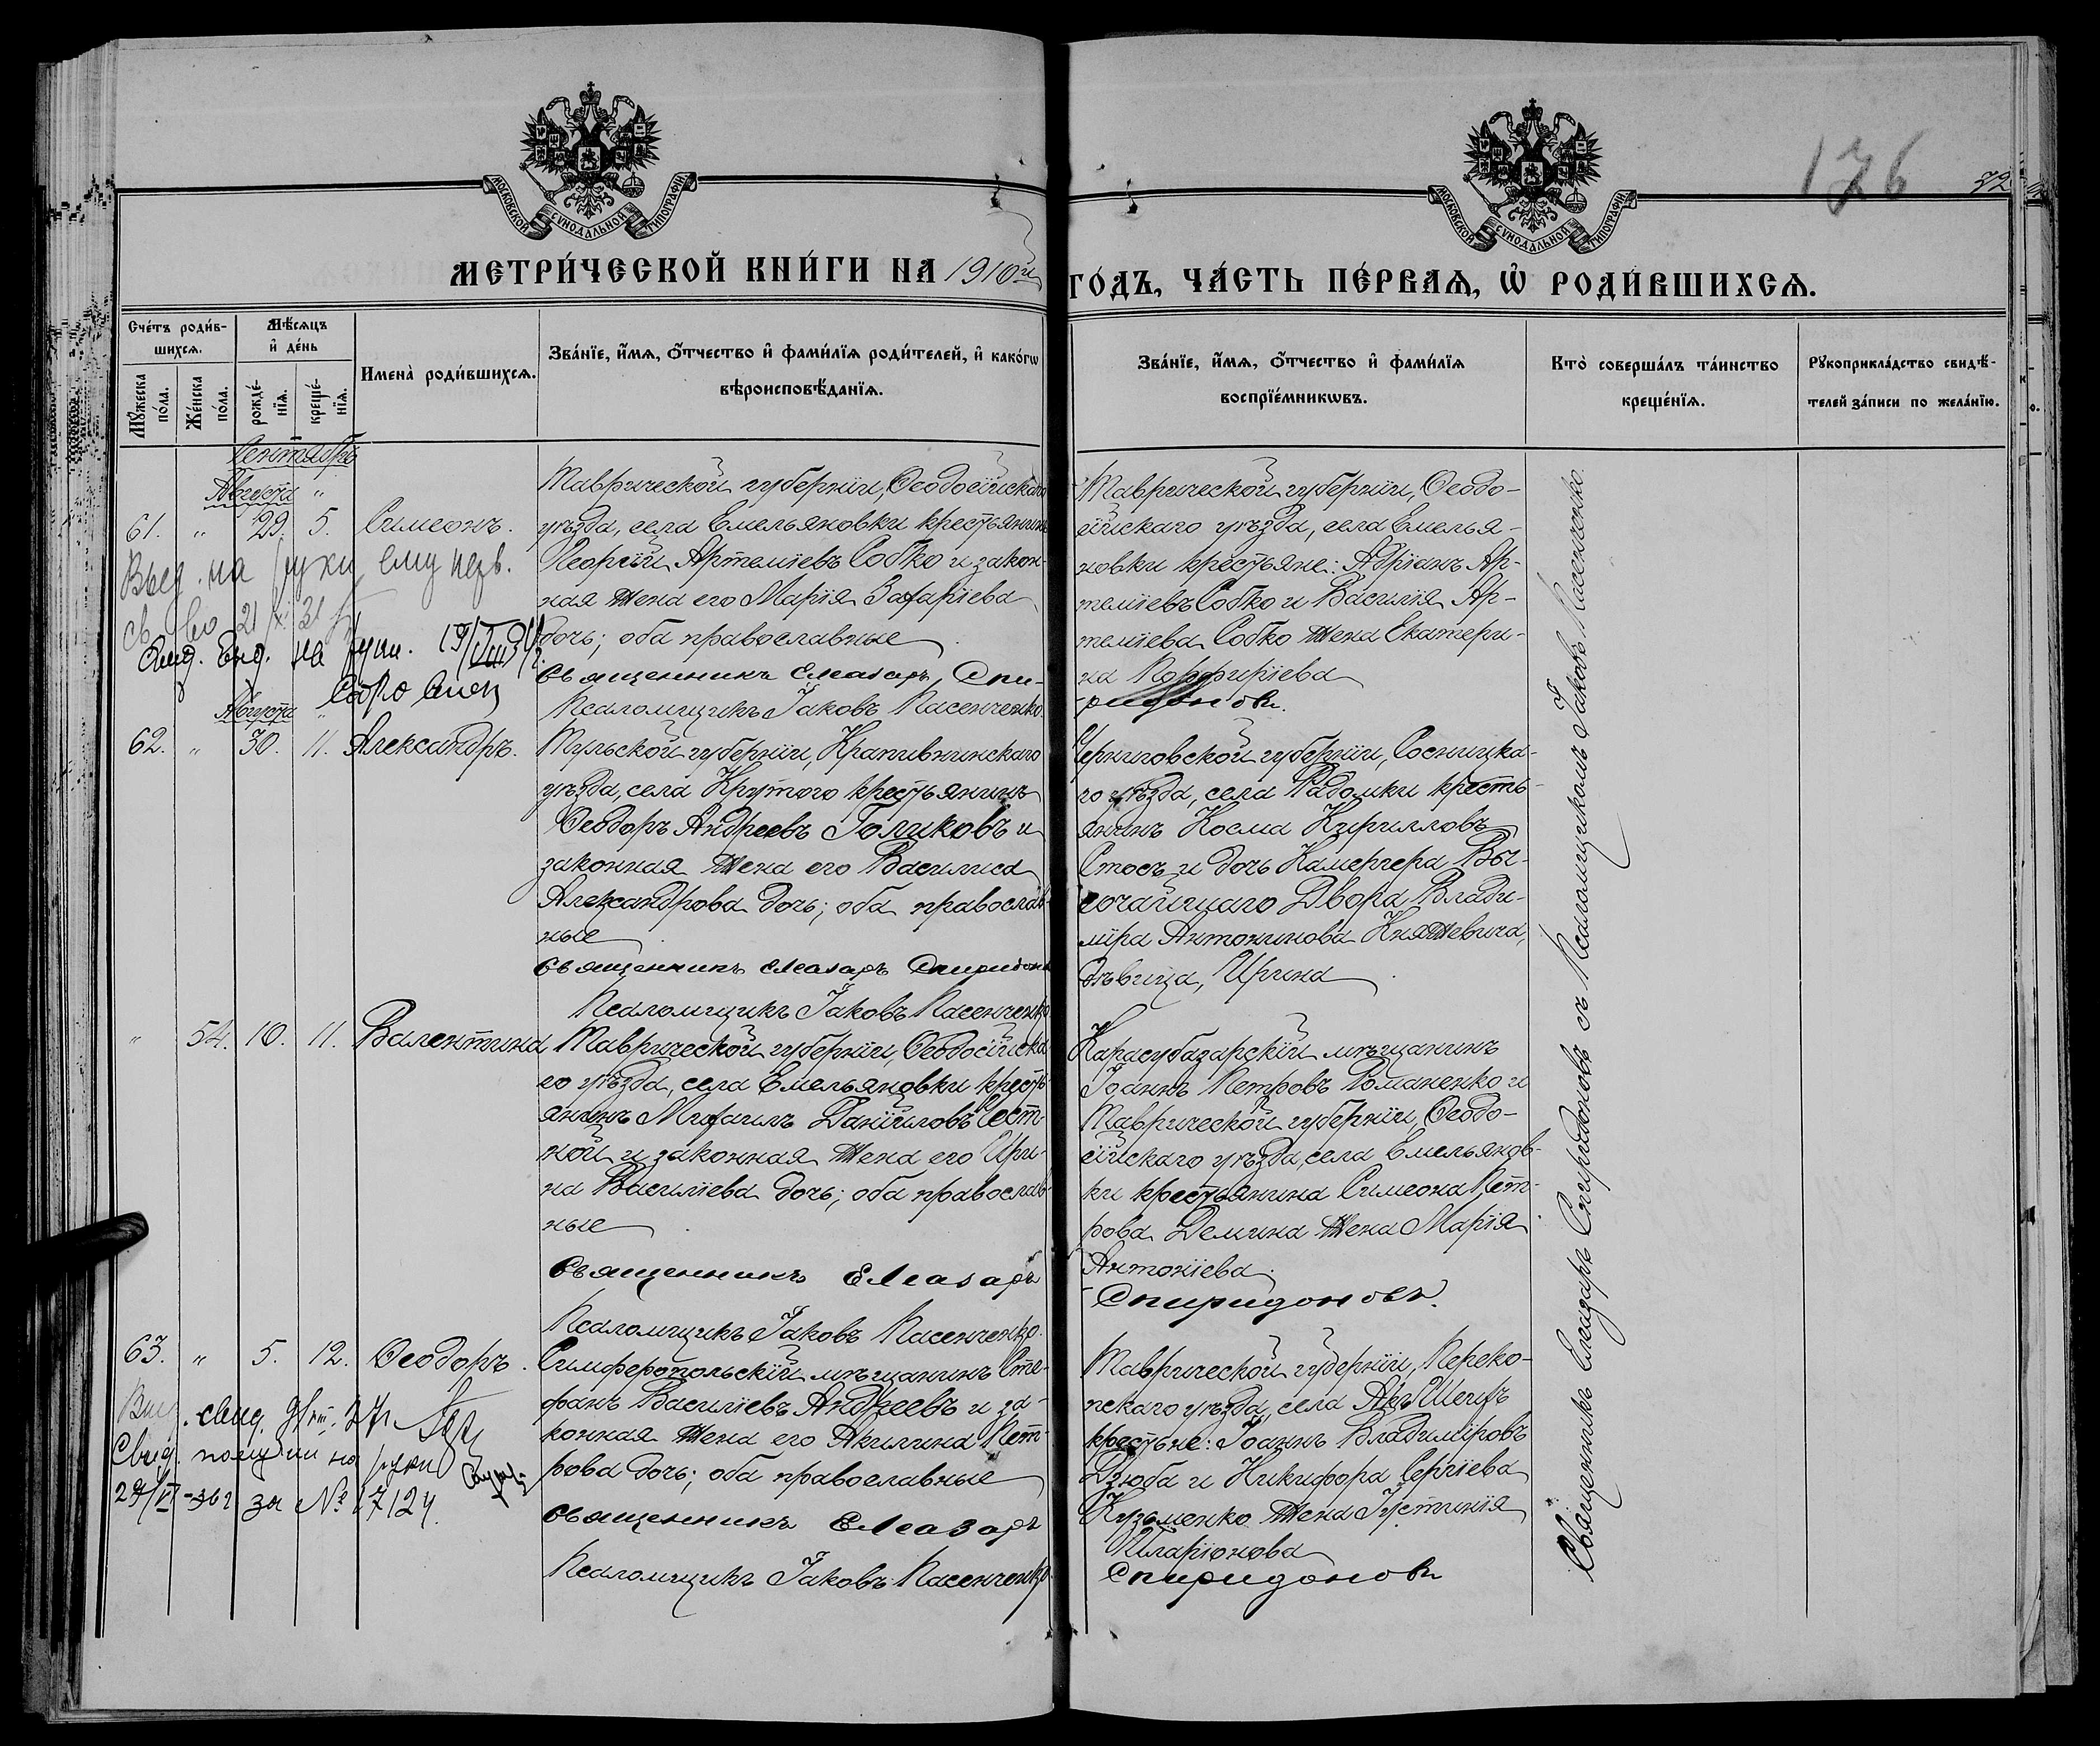 176
72
МОСКОВСКОЙ СУНОДАЛЬНОЙ ТИПОГРАФІИ
МОСКОВСКОЙ СУНОДАЛЬНОЙ ТИПОГРАФІИ
МЕТРИ́ЧЕСКОЙ КНИ́ГИ НА 1910й
ГО́ДЪ, ЧА́СТЬ ПЕ́РВАѦ, Ѡ҆ РОДИ́ВШИХСѦ.
Сче́тъ роди́в-
шихсѧ.
Мѣ́сѧцъ
и҆ де́нь
Мꙋ́жеска
по́ла.
Же́нска
по́ла.
рожде́-
нїѧ.
креще́-
нїѧ.
Имена̀ роди́вшихсѧ.
Зва́нїе, и҆́мѧ, ѻ҆́тчество и҆ фами́лїѧ роди́телей, и҆ како́гѡ
вѣроисповѣ́данїѧ.
Зва́нїе, и҆́мѧ, ѻ҆́тчество и҆ фами́лїѧ
воспрїе́мникѡвъ.
Кто̀ соверша́лъ та́инство
креще́нїѧ.
Рꙋкоприкла́дство свидѣ́-
телей за́писи по жела́нїю.
Сентябрь
Августа "
61. " 29. 5. Симеонъ.
Таврической губерніи, Ѳеодосійскаго
уѣзда, села Емельяновки крестьянинъ
Георгій Артеміевъ Собко и закон-
ная жена его Марія Захаріева
дочь; оба православные
Священникъ Елеазаръ Спи-
Псаломщикъ Іаковъ Пасенченко.
Таврической губерніи, Ѳеодо-
сійскаго уѣзда, села Емелья-
новки крестьяне: Адріанъ Ар-
теміевъ Собко и Василія Ар-
теміева Собко жена Екатери-
на Порфиріева
ридоновъ.
на руки ему
21 31
на руки.
Собко
Августа "
62. " 30. 11. Александръ.
Тульской губерніи, Крапивнинскаго
уѣзда, села Крутого крестьянинъ
Ѳеодоръ Андреевъ Голиковъ и
законная жена его Василиса
Александрова дочь; оба православ-
ные
Священникъ Елеазаръ Спиридоновъ
Псаломщикъ Іаковъ Пасенченко
Черниговской губерніи, Сосницка-
го уѣзда, села Радомки кресть-
янинъ Косма Кирилловъ
Стось и дочь Камергера Вы-
сочайшаго Двора Влади-
міра Антонинова Княжевича,
дѣвица, Ирина
" 54. 10. 11. Валентина
Таврической губерніи, Ѳеодосійска-
го уѣзда, села Емельяновки кресть-
янинъ Михаилъ Даніиловъ Чест-
ной и законная жена его Ири-
на Василіева дочь; оба православ-
ные
Священникъ Елеазаръ
Псаломщикъ Іаковъ Пасенченко.
Карасубазарскій мѣщанинъ
Іоаннъ Петровъ Романенко и
Таврической губерніи, Ѳеодо-
сійскаго уѣзда, села Емельянов-
ки крестьянина Симеона Пет-
рова Демина жена Марія
Антоніева.
Спиридоновъ.
63. " 5. 12. Ѳеодоръ.
Симферопольскій мѣщанинъ Сте-
фанъ Василіевъ Андреевъ и за-
конная жена его Акилина Пет-
рова дочь; оба православные
Священникъ Елеазаръ
Псаломщикъ Іаковъ Пасенченко.
Таврической губерніи, Переко-
пскаго уѣзда, села Акъ Шеихъ
крестьяне: Іоаннъ Владиміровъ
Дзюба и Никифора Сергіева
Кузьменко жена Іустинія
Иларіонова
Спиридоновъ
Свид. получил на руки
за № 17124.
Священникъ Елеазаръ Спиридоновъ съ Псаломщикомъ Іаковъ Пасенченко.